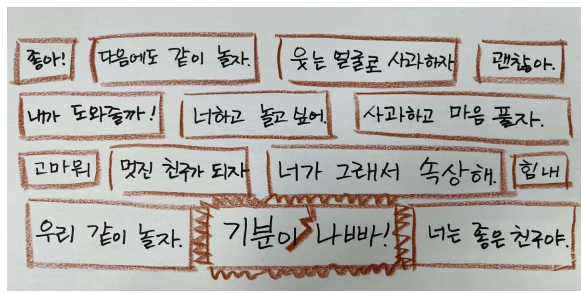 좋아! 다음에도 같이 놀자. 웃는 얼굴로 사과하자 괜찮아.
내가 도와줄까! 너하고 놀고 싶어. 사과하고 마음 풀자.
고마워 멋진 친구가 되자 너가 그래서 속상해. 힘내
우리 같이 놀자. 기분이 나빠! 너는 좋은 친구야.